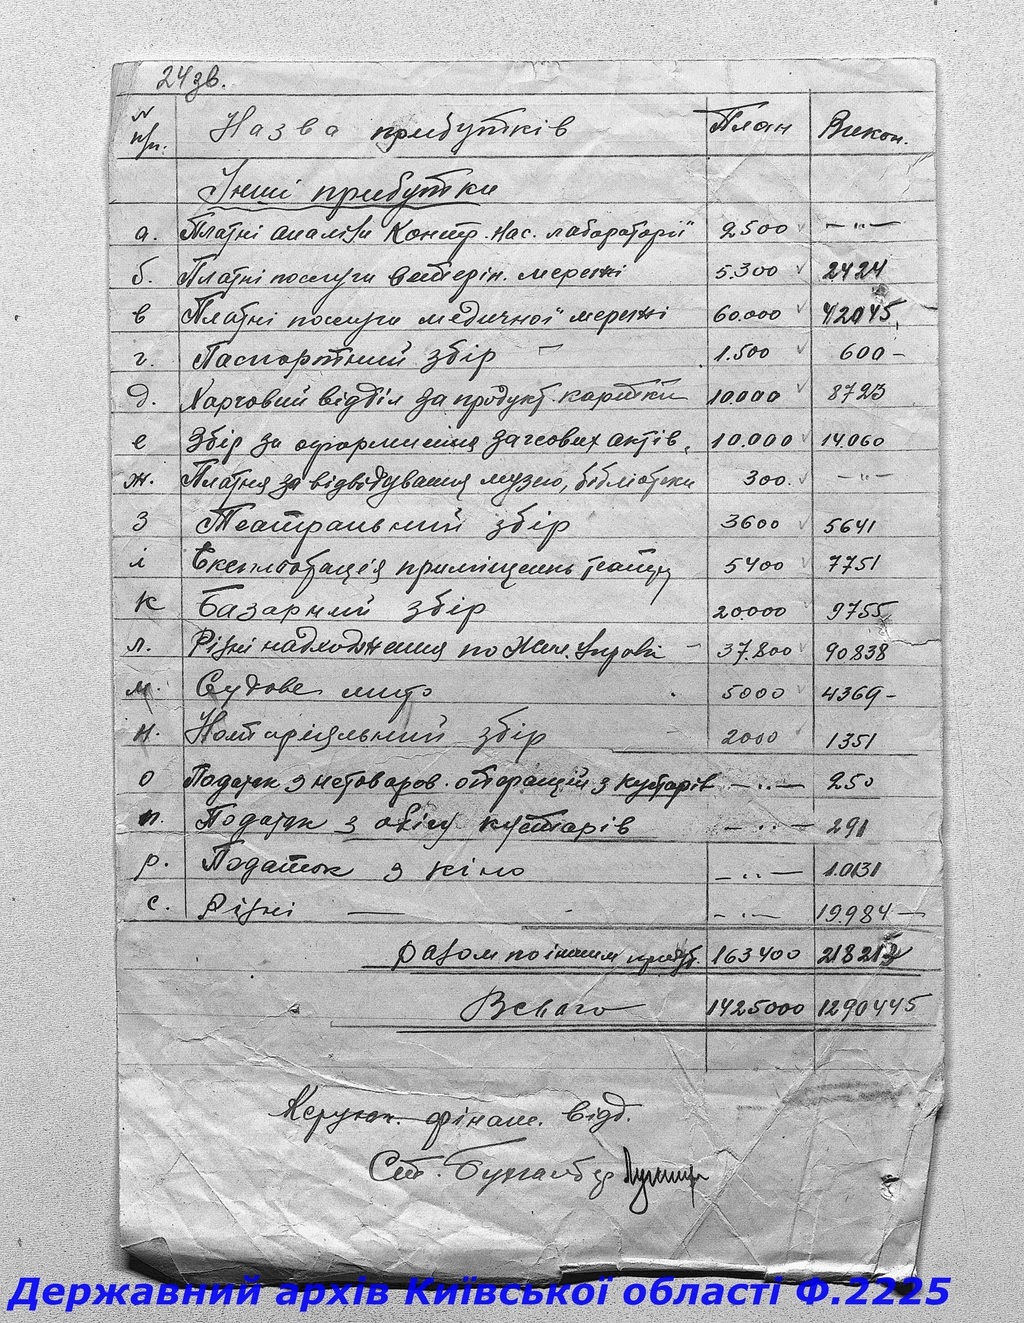 24зв.
N п/п. Назва прибутків План Викон.
Інші прибутки
а. Платні аналізи Контр. Нас. лабораторії 2500 — " —
б. Платні послуги ветерін. мережі 5.300 2424
в Платні послуги медичної мережі 60.000 42045
г. Паспортний збір — 1.500 600 —
д. Харчовий відділ за продукт. картки 10.000 8723
е Збір за оформлення загсових актів. 10.000 14060
ж. Платня за відвідування музею, бібліотеки 300. — " —
з Театральний збір 3600 5641
і Експлоатація приміщень театру 5400 7751
к Базарний збір 20.000 9755
л. Різні надходження по Жил. Управі — 37.800 90838
м. Судове мито 5000 4369 —
н. Нотаріяльний збір 2000 1351
о Податок з нетоваров. операцій з кустарів — " — 250
п. Податок з обігу кустарів — " — 291
р. Податок з кіно — " — 10131
с. Різні — — " — 19.984 —
Разом по іншим прибут. 163400
Всього 1425000 1290445
Керуюч. фінанс. відд.
Ст. Бухгалтер
Державний архів Київської області Ф.2225